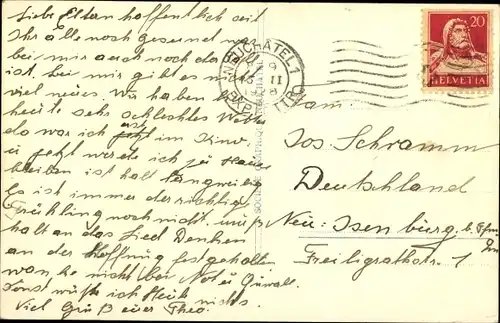 Liebe Eltern hoffentlich seit
Ihr alle noch gesund was
bei mir auch noch der Fall
ist. Bei mir gibt es nicht
viel neues. Wir haben
heute sehr schlechtes Wetter
da war ich erst jetzt im Kino.
u jetzt werde ich zu Hause
bleiben ist halt langweilig
Es ist immer der richtige
Frühling noch nicht. muß
halt an das Lied Denken
an der Hoffnung festgehalten
wan ke nicht bei Not u Quvall.
Sonst wüßte ich Heute nichts
Viel Grüß euer Theo.
NEUCHATEL 1
9
II
EXP. LETTR.
20
HELVETIA
Fam
Jos Schramm
Deutschland
Neu-Isenburg b. Ffm
Freiligrathstr. 1